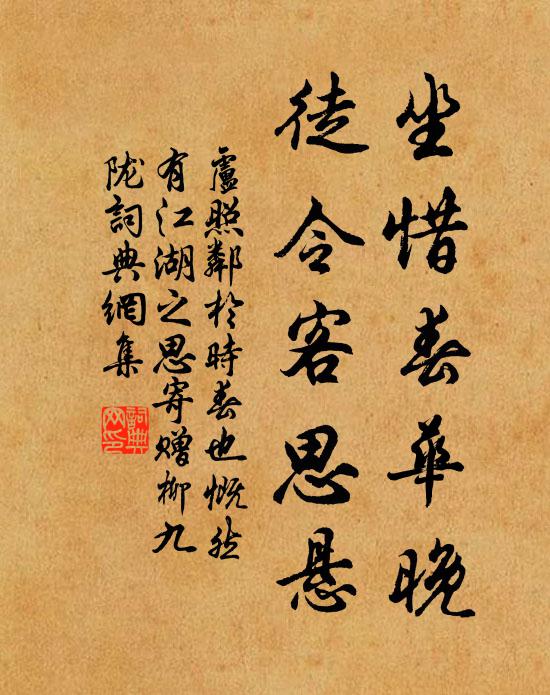 坐惜春華晚
徒令客思懸
盧照鄰於時春也慨然
有江湖之思寄贈柳九
陇詞典網集
詞典
网印